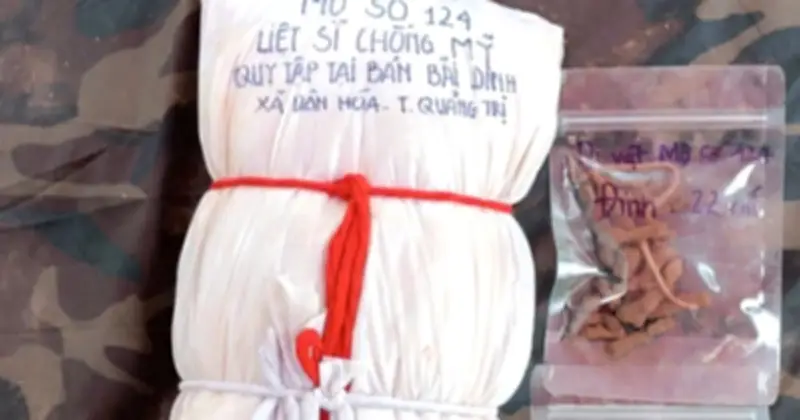 MỘ SỐ 124
LIỆT SĨ CHỐNG MỸ
QUY TẬP TẠI BẢN BÃI DINH
XÃ DÂN HÓA - T. QUẢNG TRỊ
Di vật Mộ số 124
Đinh: 22 cái